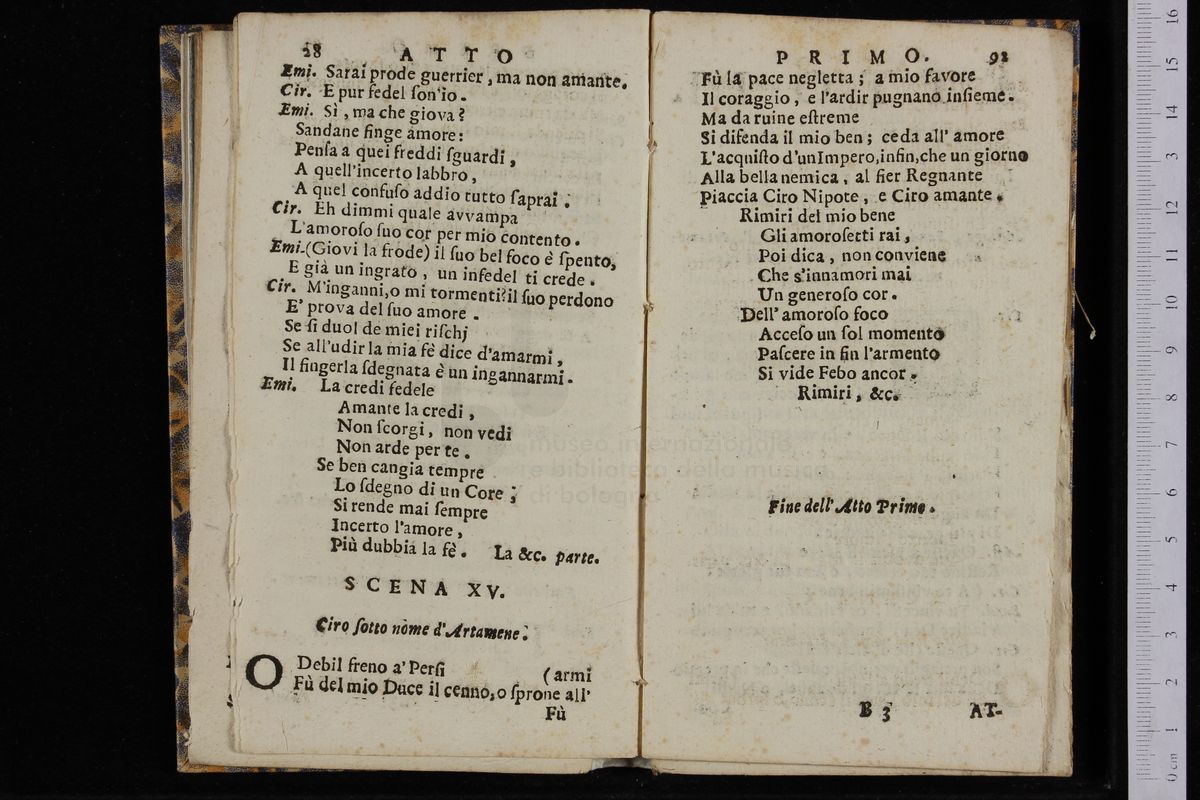 28 ATTO
Emi. Sarai prode guerrier, ma non amante.
Cir. E pur fedel ſon'io.
Emi. Sì, ma che giova?
Sandane finge amore:
Penſa a quei freddi ſguardi,
A quell'incerto labbro,
A quel confuſo addio tutto ſaprai.
Cir. Eh dimmi quale avvampa
L'amoroſo ſuo cor per mio contento.
Emi.(Giovi la frode) il ſuo bel foco è ſpento,
E già un ingrato, un infedel ti crede.
Cir. M'inganni,o mi tormenti?il ſuo perdono
E' prova del ſuo amore.
Se ſi duol de miei riſchj
Se all'udir la mia fè dice d'amarmi,
Il fingerla ſdegnata è un ingannarmi.
Emi. La credi fedele
Amante la credi,
Non ſcorgi, non vedi
Non arde per te.
Se ben cangia tempre
Lo ſdegno di un Core;
Si rende mai ſempre
Incerto l'amore,
Più dubbia la fè. La &c. parte.
SCENA XV.
Ciro ſotto nome d'Artamene.
O Debil freno a' Perſi (armi
Fù del mio Duce il cenno,o ſprone all'
Fù
PRIMO. 92
Fù la pace negletta; a mio favore
Il coraggio, e l'ardir pugnano inſieme.
Ma da ruine eſtreme
Si difenda il mio ben; ceda all' amore
L'acquiſto d'unImpero,infin,che un giorno
Alla bella nemica, al fier Regnante
Piaccia Ciro Nipote, e Ciro amante.
Rimiri del mio bene
Gli amoroſetti rai,
Poi dica, non conviene
Che s'innamori mai
Un generoſo cor.
Dell' amoroſo foco
Acceſo un ſol momento
Paſcere in fin l'armento
Si vide Febo ancor.
Rimiri, &c.
Fine dell' Atto Primo.
B 3 AT-
museo internazionale
e biblioteca della musica
di bologna
0 cm 1 2 3 4 5 6 7 8 9 10 11 12 13 14 15 16